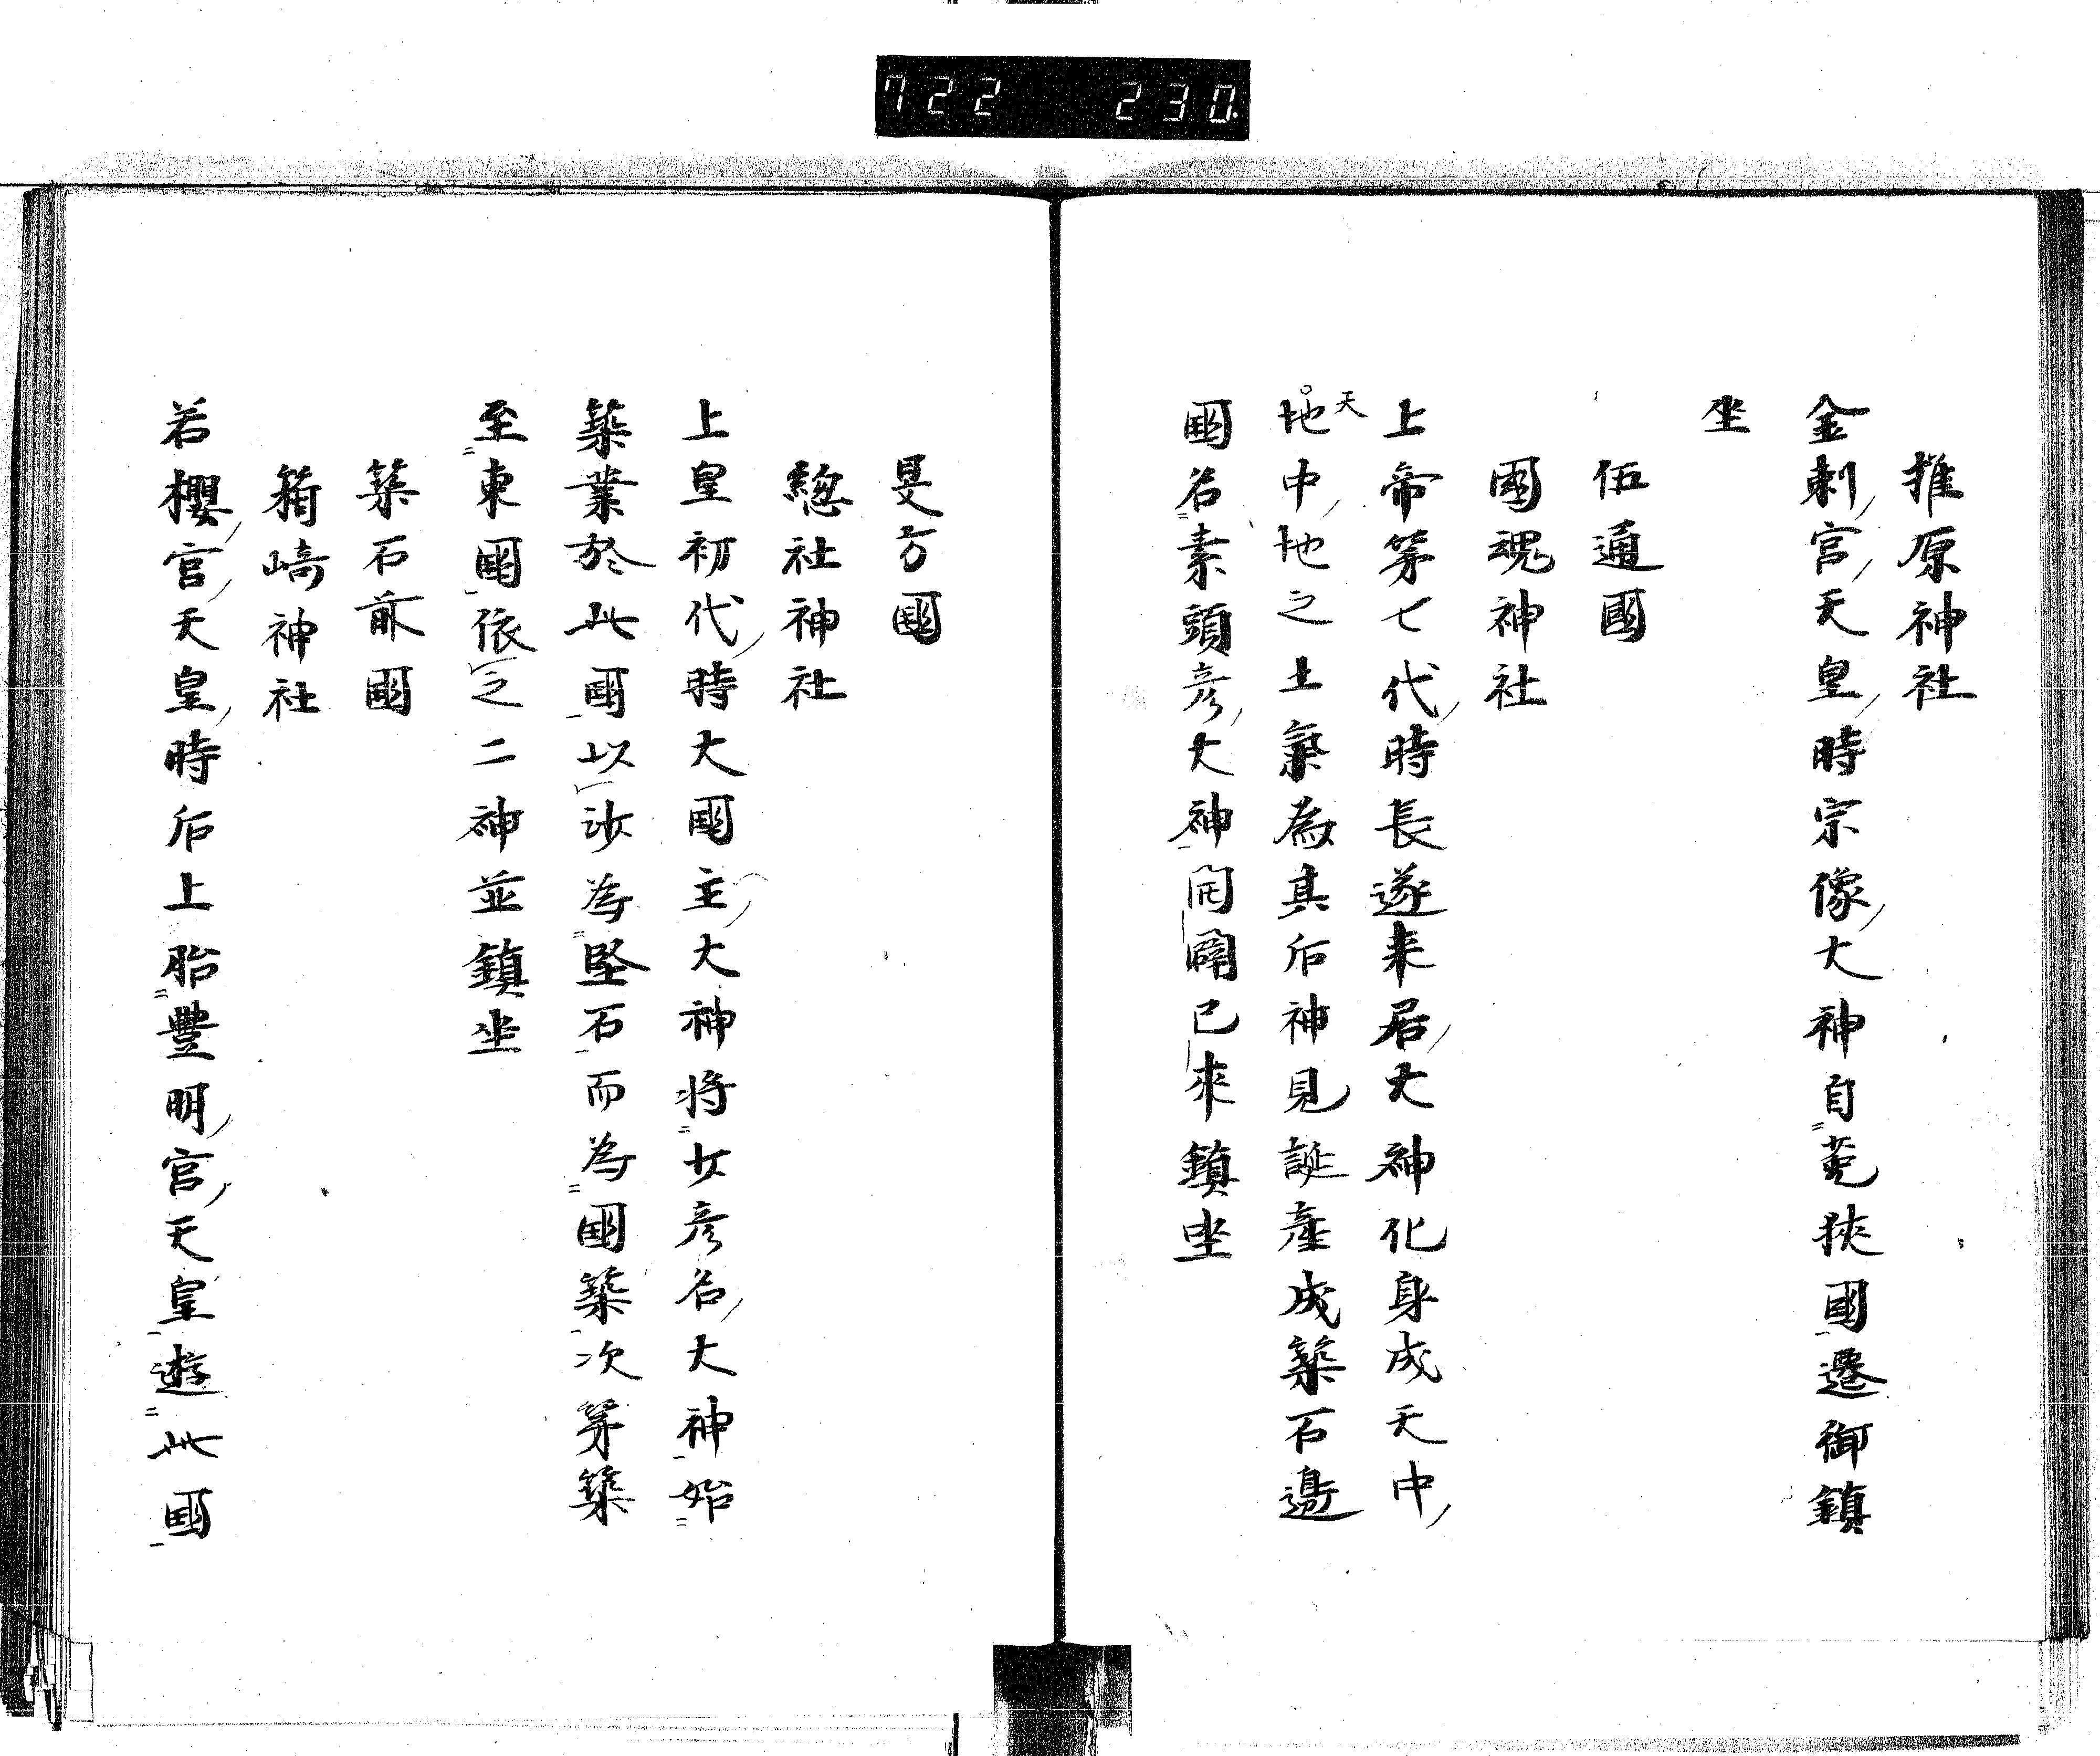 722 230.
推原神社
金刺宮天皇時宗像大神自菟狹國遷御鎮
坐
伍通國
國魂神社
上帝第七代時長遂来居大神化身成天中
天
地中地之土氣為其后神見誕產成築石邊
國名素頭彦大神開闢已來鎮坐
旻方國
總社神社
上皇初代時大國主大神将女彦名大神始
築業於此國以沙為堅石而為國築次第築
至東國依之二神並鎮坐
築石前國
箱崎神社
若櫻宮天皇時后上胎豐明宮天皇遊此國